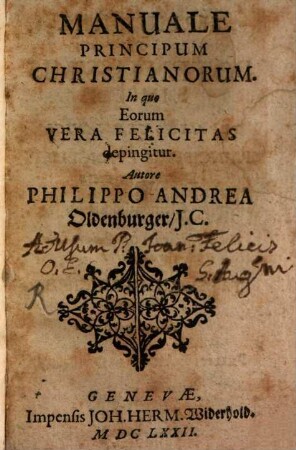 MANUALE
PRINCIPUM
CHRISTIANORUM.
In quo
Eorum
VERA FELICITAS
depingitur.
Autore
PHILIPPO ANDREA
Oldenburger/J.C.
Ad Usum P. Joan: Felicis
O. E.
R
GENEVÆ,
Impensis JOH. HERM. Widerhold.
M DC LXXII.